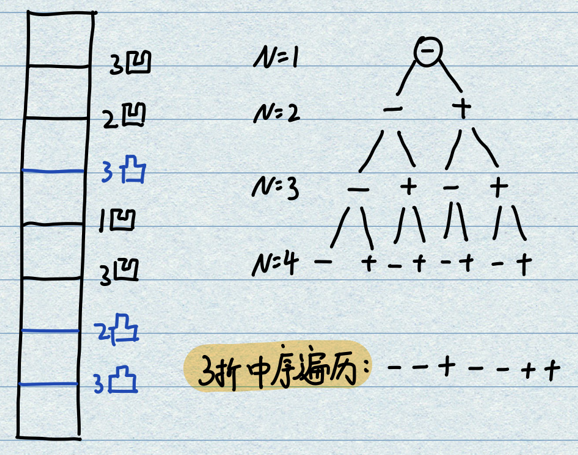 3凹
2凹
3凸
1凹
3凹
2凸
3凸
N=1 -
N=2 - +
N=3 - + - +
N=4 - + - + - + - +
3折中序遍历: - - + - - + +